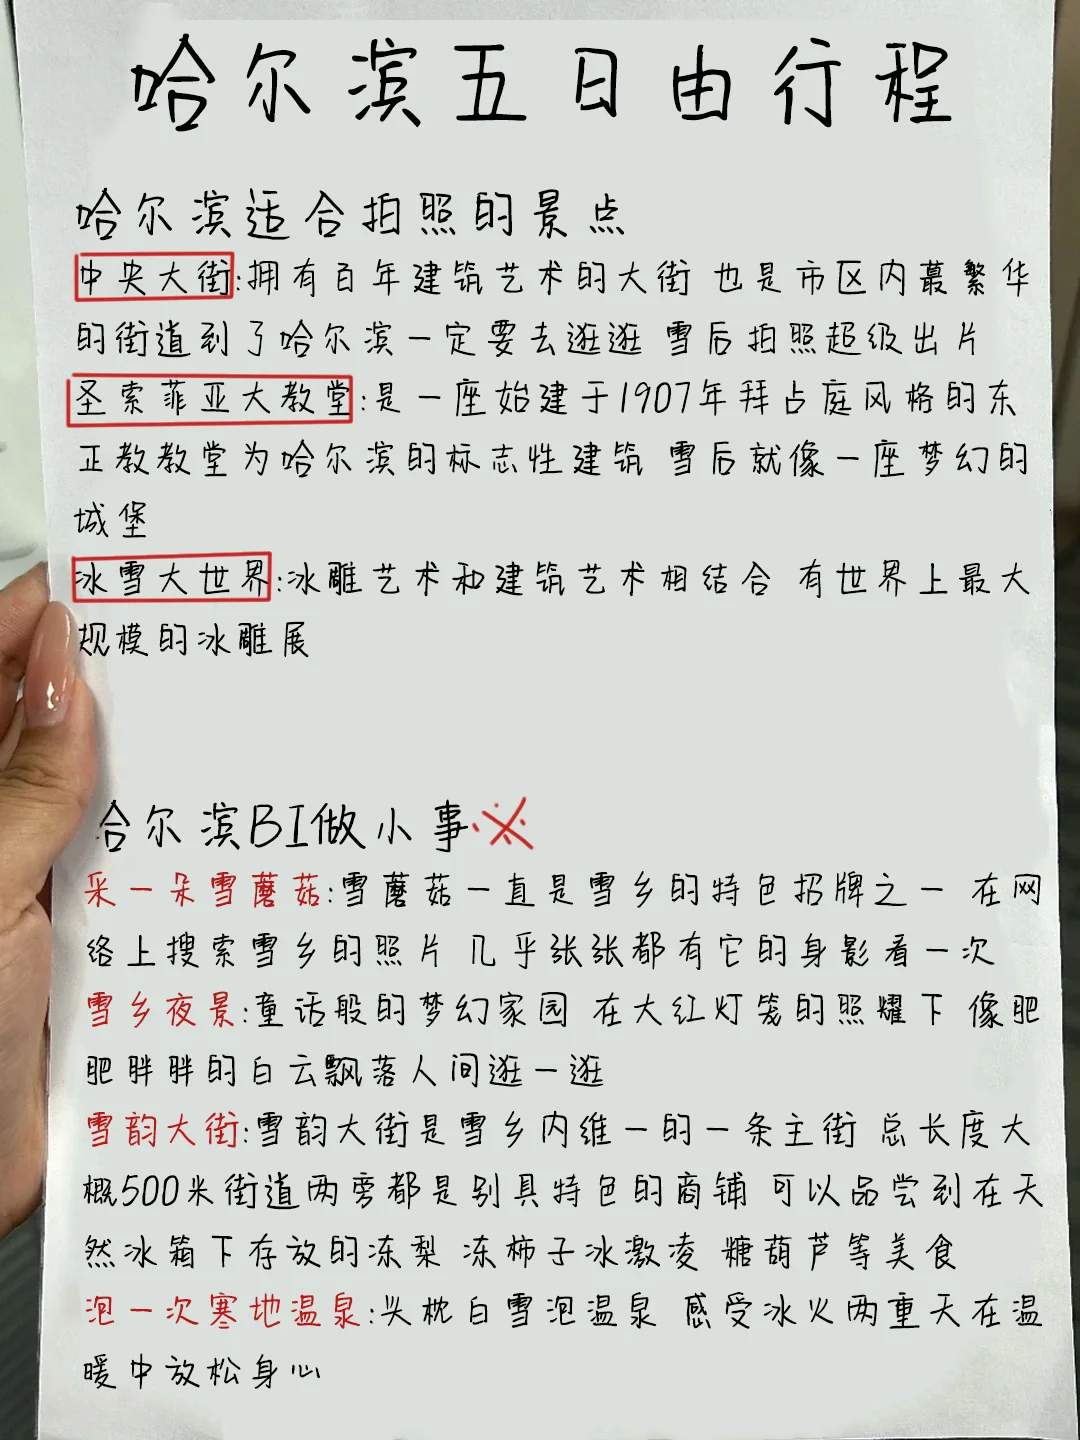 哈尔滨五日由行程
哈尔滨适合拍照的景点
中央大街:拥有百年建筑艺术的大街 也是市区内最繁华
的街道到了哈尔滨一定要去逛逛 雪后拍照超级出片
圣索菲亚大教堂:是一座始建于1907年拜占庭风格的东
正教教堂为哈尔滨的标志性建筑 雪后就像一座梦幻的
城堡
冰雪大世界:冰雕艺术和建筑艺术相结合 有世界上最大
规模的冰雕展
哈尔滨BI做小事
采一朵雪蘑菇:雪蘑菇一直是雪乡的特色招牌之一 在网
络上搜索雪乡的照片 几乎张张都有它的身影看一次
雪乡夜景:童话般的梦幻家园 在大红灯笼的照耀下 像肥
肥胖胖的白云飘落人间逛一逛
雪韵大街:雪韵大街是雪乡内维一的一条主街 总长度大
概500米街道两旁都是别具特色的商铺 可以品尝到在天
然冰箱下存放的冻梨 冻柿子冰激凌 糖葫芦等美食
泡一次寒地温泉:头枕白雪泡温泉 感受冰火两重天在温
暖中放松身心